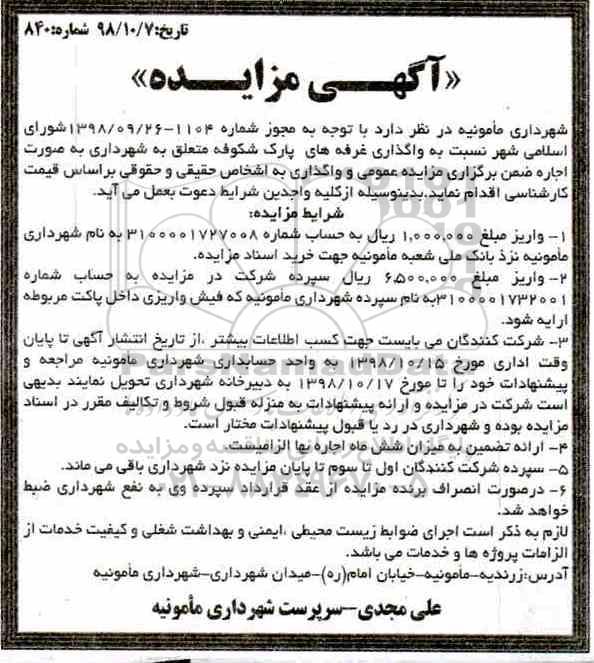 تاریخ:۹۸/۱۰/۷ شماره:۸۴۰
«آگهی مزایده»
شهرداری مأمونیه در نظر دارد با توجه به مجوز شماره ۱۱۰۴-۱۳۹۸/۰۹/۲۶شورای
اسلامی شهر نسبت به واگذاری غرفه های پارک شکوفه متعلق به شهرداری به صورت
اجاره ضمن برگزاری مزایده عمومی و واگذاری به اشخاص حقیقی و حقوقی براساس قیمت
کارشناسی اقدام نماید.بدینوسیله ازکلیه واجدین شرایط دعوت بعمل می آید.
شرایط مزایده:
۱- واریز مبلغ ۱,۰۰۰,۰۰۰ ریال به حساب شماره ۳۱۰۰۰۰۱۷۲۷۰۰۸ به نام شهرداری
مأمونیه نزد بانک ملی شعبه مأمونیه جهت خرید اسناد مزایده.
۲- واریز مبلغ ۶,۵۰۰,۰۰۰ ریال سپرده شرکت در مزایده به حساب شماره
۳۱۰۰۰۰۱۷۳۲۰۰۱به نام سپرده شهرداری مأمونیه که فیش واریزی داخل پاکت مربوطه
ارایه شود.
۳- شرکت کنندگان می بایست جهت کسب اطلاعات بیشتر ،از تاریخ انتشار آگهی تا پایان
وقت اداری مورخ ۱۳۹۸/۱۰/۱۵ به واحد حسابداری شهرداری مأمونیه مراجعه و
پیشنهادات خود را تا مورخ ۱۳۹۸/۱۰/۱۷ به دبیرخانه شهرداری تحویل نمایند بدیهی
است شرکت در مزایده و ارائه پیشنهادات به منزله قبول شروط و تکالیف مقرر در اسناد
مزایده بوده و شهرداری در رد یا قبول پیشنهادات مختار است.
۴- ارائه تضمین به میزان شش ماه اجاره بها الزامیست.
۵- سپرده شرکت کنندگان اول تا سوم تا پایان مزایده نزد شهرداری باقی می ماند.
۶- درصورت انصراف برنده مزایده از عقد قرارداد سپرده وی به نفع شهرداری ضبط
خواهد شد.
لازم به ذکر است اجرای ضوابط زیست محیطی ،ایمنی و بهداشت شغلی و کیفیت خدمات از
الزامات پروژه ها و خدمات می باشد.
آدرس:زرندیه-مأمونیه-خیابان امام(ره)-میدان شهرداری-شهرداری مأمونیه
علی مجدی-سرپرست شهرداری مأمونیه